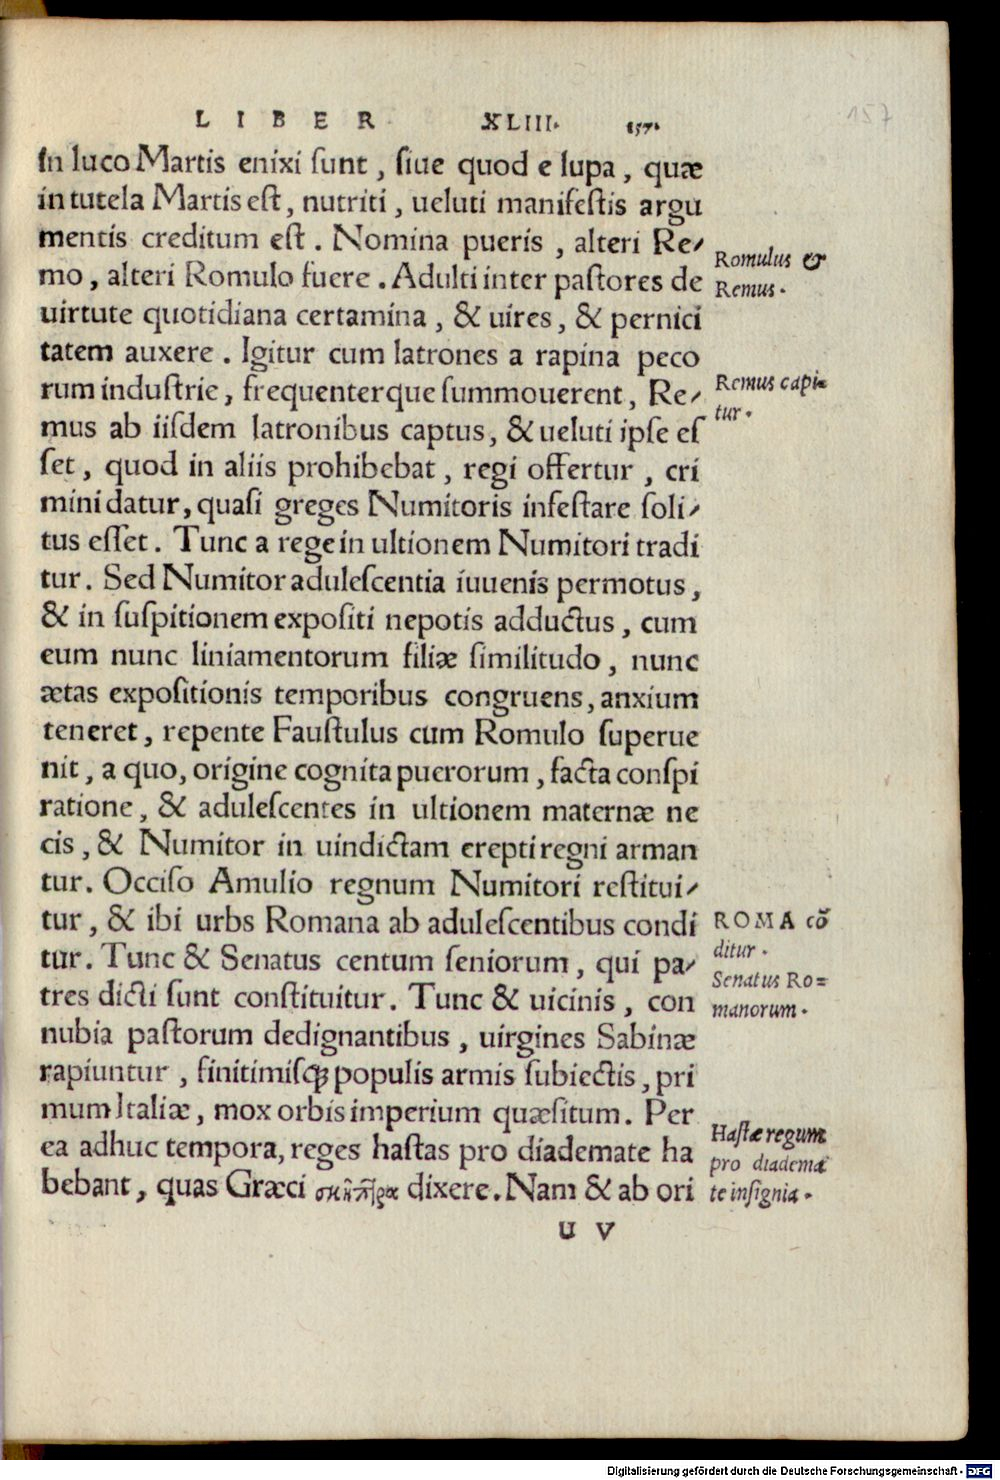 LIBER XLIII. 157.
157
in luco Martis enixi ſunt, ſiue quod e lupa, quæ
in tutela Martis eſt, nutriti, ueluti manifeſtis argu
mentis creditum eſt. Nomina pueris, alteri Re⸗
mo, alteri Romulo fuere. Adulti inter paſtores de
uirtute quotidiana certamina, & uires, & pernici
tatem auxere. Igitur cum latrones a rapina peco
rum induſtrie, frequenterque ſummouerent, Re⸗
mus ab iiſdem latronibus captus, & ueluti ipſe eſ
ſet, quod in aliis prohibebat, regi offertur, cri
mini datur, quaſi greges Numitoris infeſtare ſoli⸗
tus eſſet. Tunc a rege in ultionem Numitori tradi
tur. Sed Numitor aduleſcentia iuuenis permotus,
& in ſuſpitionem expoſiti nepotis adductus, cum
eum nunc liniamentorum filiæ ſimilitudo, nunc
ætas expoſitionis temporibus congruens, anxium
teneret, repente Fauſtulus cum Romulo ſuperue
nit, a quo, origine cognita puerorum, facta conſpi
ratione, & aduleſcentes in ultionem maternæ ne
cis, & Numitor in uindictam erepti regni arman
tur. Occiſo Amulio regnum Numitori reſtitui⸗
tur, & ibi urbs Romana ab aduleſcentibus condi
tur. Tunc & Senatus centum ſeniorum, qui pa⸗
tres dicti ſunt conſtituitur. Tunc & uicinis, con
nubia paſtorum dedignantibus, uirgines Sabinæ
rapiuntur, finitimiſqꝫ populis armis ſubiectis, pri
mum Italiæ, mox orbis imperium quæſitum. Per
ea adhuc tempora, reges haſtas pro diademate ha
bebant, quas Græci dixere. Nam & ab ori
u v
Romulus &
Remus.
Remus capi⸗
tur.
ROMA cō
ditur.
Senatus Ro⸗
manorum.
Haſtæ regum
pro diadema
te inſignia.
Digitalisierung gefördert durch die Deutsche Forschungsgemeinschaft - DFG